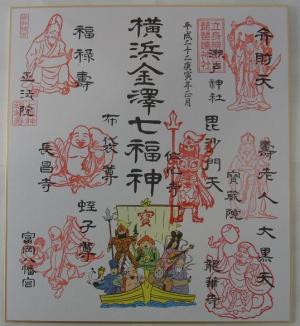 弁財天
瀬戸神社
壽老人
寶蔵院
大黒天
龍華寺
毘沙門天
伝心寺
平成二十二庚寅年正月
横浜金澤七福神
布袋尊
長昌寺
蛭子尊
富岡八幡宮
福禄壽
正法院
寶